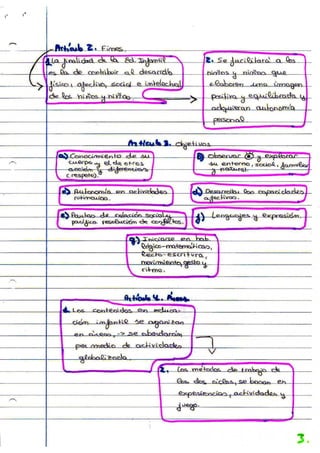 Artículo 2. Fines.
1. La finalidad de la Ed. Infantil
es la de contribuir al desarrollo
físico, afectivo, social e intelectual
de los niños y niñas.
2. Se facilitará a los
niños y niñas que
elaboren una imagen
positiva y equilibrada y
adquieran autonomía
personal.
Artículo 3. Objetivos
a) Conocimiento de su
cuerpo y el de otros
acción y diferencias
(respeto).
b) Observar y explorar
su entorno, social, familiar
y natural.
c) Autonomía en actividades
d) Desarrollar las capacidades
afectivas.
e) Pautas de relación social y
pacífica resolución de conflictos.
f) Lenguajes y Expresión.
g) Iniciarse en hab.
lógico-matemáticas,
lecto-escritura,
movimiento, gesto y
ritmo.
Artículo 4. Áreas
1. Los contenidos en educa-
ción infantil se organizan
en áreas, -> se abordarán
por medio de actividades
globalizada.
2. Los métodos de trabajo de
los dos ciclos, se basan en
experiencias, actividades y
juego.
3.